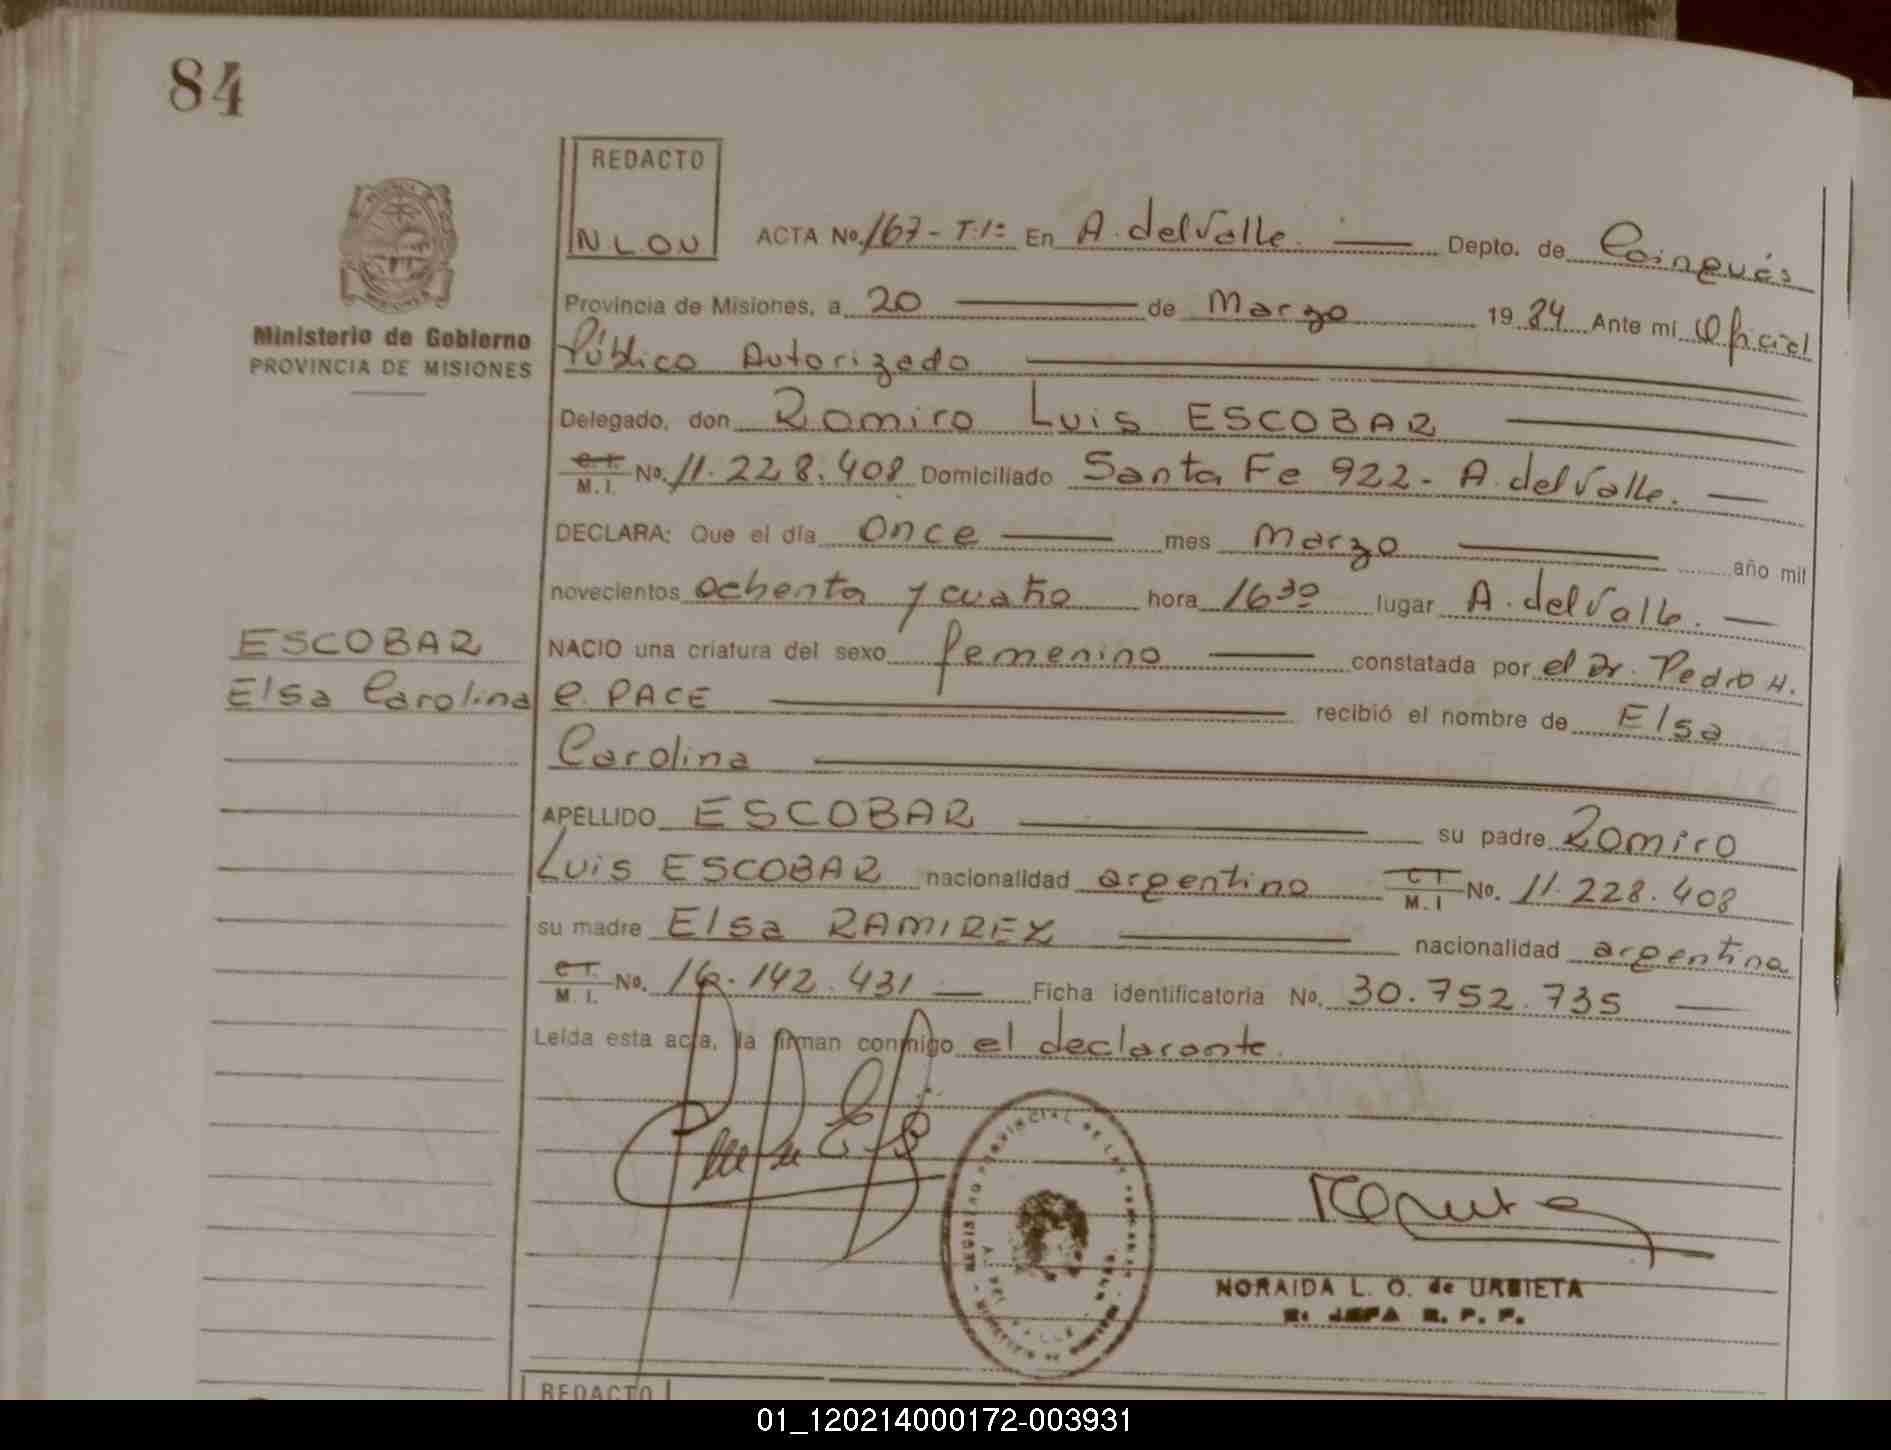 84
REDACTO
N L. O U
ACTA No. 167 - T. 1º En A. del Valle. Depto. de Cainguás
Provincia de Misiones, a 20 de Marzo 19 84 Ante mi Oficial
Ministerio de Gobierno
PROVINCIA DE MISIONES
Público Autorizado
Delegado, don Ramiro Luis ESCOBAR
C. I. M. I. No. 11.228.408 Domiciliado Santa Fe 922 - A. del Valle.
DECLARA: Que el día once mes Marzo año mil
novecientos ochenta y cuatro hora 16 30 lugar A. del Valle.
ESCOBAR
NACIO una criatura del sexo femenino constatada por el Dr. Pedro H.
Elsa Carolina
C. PACE recibió el nombre de Elsa
Carolina
APELLIDO ESCOBAR su padre Ramiro
Luis ESCOBAR nacionalidad argentino C I M. I No. 11.228.408
su madre Elsa RAMIREZ nacionalidad argentina
C I. M. I. No. 16.142.431 Ficha identificatoria No. 30.752.735
Leída esta acta, la firman conmigo el declarante.
REGISTRO PROVINCIAL DE LAS PERSONAS
A. DEL VALLE
NORAIDA L. O. de URBIETA
JEFA R. P. P.
REDACTO
01_120214000172-003931